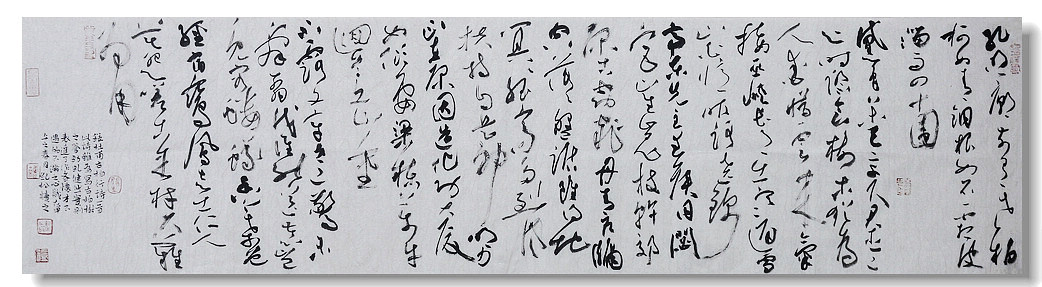 孔明廟前有老柏
柯如青銅根如石霜皮
溜雨四十圍
黛色參天二千尺君臣已
與時際會樹木猶為
人愛惜雲來氣
接巫峽長月出寒通雪
山白憶昨路繞錦
亭東先主武侯同閟
宮崔嵬枝幹郊
原古窈窕丹青戶牖
空落落盤踞雖得地
冥冥孤高多烈風
扶持自是神明力
正直原因造化功大廈
如傾要梁棟萬牛
迴首丘山重
不露文章世已驚未
辭翦伐誰能送苦心豈
免容螻蟻香葉終
經宿鸞鳳志士幽人
莫怨嗟古來材大難
為用